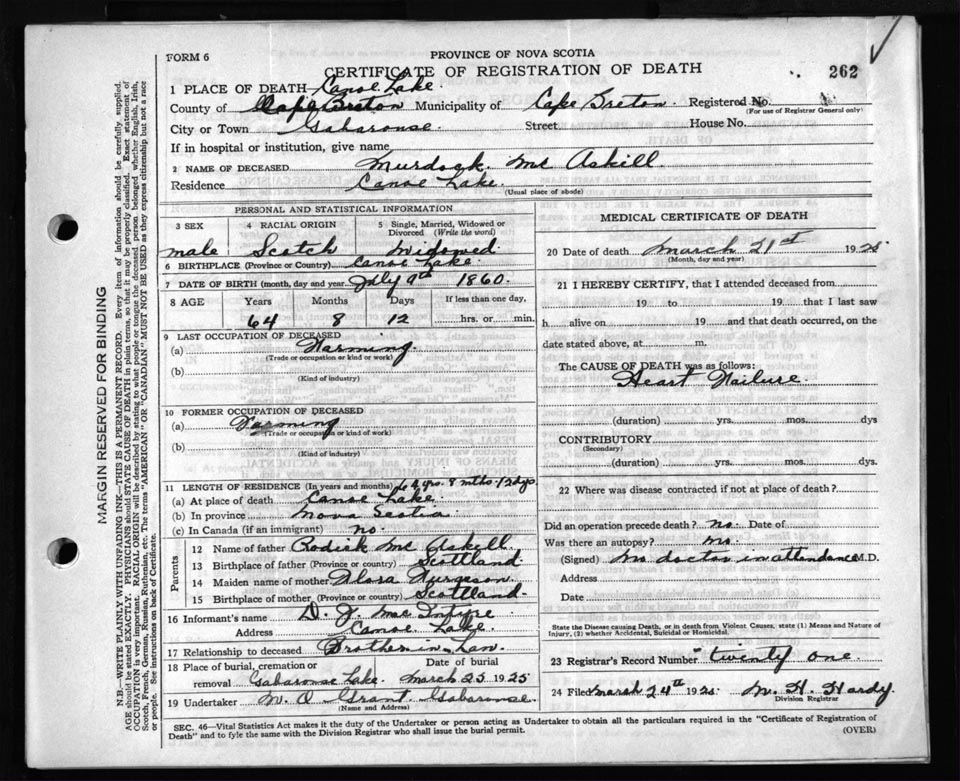 FORM 6
PROVINCE OF NOVA SCOTIA
CERTIFICATE OF REGISTRATION OF DEATH
262
1 PLACE OF DEATH Canoe Lake
County of Cape Breton Municipality of Cape Breton Registered No.
(For use of Registrar General only)
City or Town Gabarouse Street House No.
If in hospital or institution, give name
2 NAME OF DECEASED Murdock Mc Askill
Residence Canoe Lake
(Usual place of abode)
PERSONAL AND STATISTICAL INFORMATION
3 SEX 4 RACIAL ORIGIN 5 Single, Married, Widowed or Divorced (Write the word)
male Scotch Widowed
6 BIRTHPLACE (Province or Country) Canoe Lake
7 DATE OF BIRTH (month, day and year) July 9th 1860
8 AGE Years Months Days If less than one day,
64 8 12 hrs. or min.
9 LAST OCCUPATION OF DECEASED
(a) Farming
(Trade or occupation or kind of work)
(b)
(Kind of industry)
10 FORMER OCCUPATION OF DECEASED
(a) Farming
(Trade or occupation or kind of work)
(b)
(Kind of industry)
11 LENGTH OF RESIDENCE (In years and months) 64 yrs. 8 mths. 12 dys.
(a) At place of death Canoe Lake
(b) In province Nova Scotia
(c) In Canada (if an immigrant) no.
Parents
12 Name of father Rodick Mc Askell
13 Birthplace of father (Province or country) Scotland
14 Maiden name of mother Flora Furgeson
15 Birthplace of mother (Province or country) Scotland
16 Informant's name D. J. Mac Intyre
Address Canoe Lake
17 Relationship to deceased Brother in Law
18 Place of burial, cremation or Date of burial
removal Gabarouse Lake March 23 1925
19 Undertaker M. O Grant Gabarouse
(Name and Address)
MEDICAL CERTIFICATE OF DEATH
20 Date of death March 21st 1925
(Month, day and year)
21 I HEREBY CERTIFY, that I attended deceased from
19 to 19 that I last saw
h alive on 19 and that death occurred, on the
date stated above, at m.
The CAUSE OF DEATH was as follows:
Heart Failure
(duration) yrs. mos. dys
CONTRIBUTORY
(Secondary)
(duration) yrs. mos. dys.
22 Where was disease contracted if not at place of death?
Did an operation precede death? No. Date of
Was there an autopsy? No.
(Signed) No doctor in attendance M.D.
Address
Date
State the Disease causing Death, or in death from Violent Causes, state (1) Means and Nature of
Injury, (2) whether Accidental, Suicidal or Homicidal.
23 Registrar's Record Number twenty one
24 Filed March 24th 1925 M. H. Hardy
Division Registrar
SEC. 46—Vital Statistics Act makes it the duty of the Undertaker or person acting as Undertaker to obtain all the particulars required in the "Certificate of Registration of
Death" and to fyle the same with the Division Registrar who shall issue the burial permit.
(OVER)
MARGIN RESERVED FOR BINDING
N.B.—WRITE PLAINLY WITH UNFADING INK—THIS IS A PERMANENT RECORD. Every item of information should be carefully supplied.
AGE should be stated EXACTLY. PHYSICIANS should STATE CAUSE OF DEATH in plain terms, so that it may be properly classified. Exact statement of
OCCUPATION is very important. RACIAL ORIGIN will be described by stating to what people or tongue the deceased person belonged whether English, Irish,
Scotch, French, German, Russian, Ruthenian, etc. The terms "AMERICAN" OR "CANADIAN" MUST NOT BE USED as they express citizenship but not a race
or people. See instructions on back of Certificate.